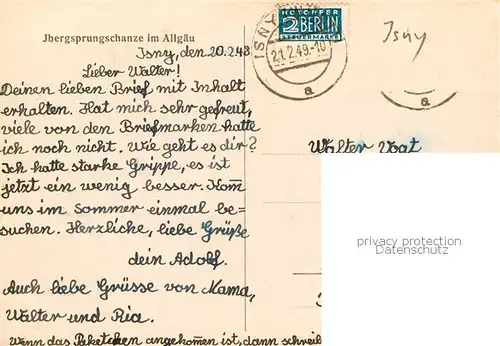 Jbergsprungschanze im Allgäu
Isny, den 20.2.48
Lieber Walter!
Deinen lieben Brief mit Inhalt
erhalten. Hat mich sehr gefreut,
viele von den Briefmarken hatte
ich noch nicht. Wie geht es dir?
Ich hatte starke Grippe, es ist
jetzt ein wenig besser. Kom̄
uns im Sommer einmal be-
suchen. Herzliche, liebe Grüße
dein Adolf.
Auch liebe Grüsse von Mama,
Walter und Ria.
Wenn das Paketchen angekom̄en ist, dann schreib
NOTOPFER
2 BERLIN
STEUERMARKE
ISNY
21.2.49.-10
a
Isny
a
Walter Vogt
privacy protection
Datenschutz